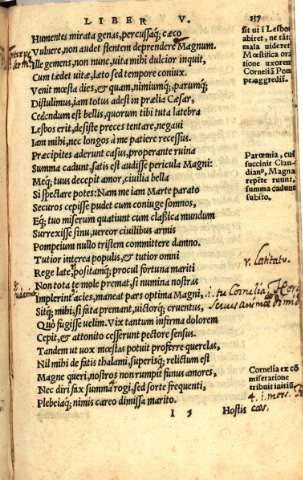 LIBER V. 137
Humentes mirata genas, percussaq; cæco
Vulnere, non audet flentem deprendere Magnum.
Ille gemens, non nunc, uita mihi dulcior inquit,
Cum tædet uitæ, læto sed tempore coniux.
Venit mœsta dies, & quam, nimiumq;, parumq;
Distulimus, iam totus adest in prælia Cæsar,
Cedendum est bellis, quorum tibi tuta latebra
Lesbos erit, desiste preces tentare, negaui
Iam mihi, nec longos à me patiere recessus.
Præcipites aderunt casus, properante ruina
Summa cadunt. satis est audisse pericula Magni:
Meq; tuus decepit amor, ciuilia bella
Si spectare potes: Nam me iam Marte parato
Securos cepisse pudet cum coniuge somnos,
Eq; tuo miserum quatiunt cum classica mundum
Surrexisse sinu, uereor ciuilibus armis
Pompeium nullo tristem committere damno.
Tutior interea populis, & tutior omni
Rege late, positamq; procul fortuna mariti
Non tota te mole premat, si numina nostras
Impleriut acies, maneat pars optima Magni,
Sitq; mihi, si fata premant, uictorq; cruentus,
Quò fugisse uelim. Vix tantum infirma dolorem
Cepit, & attonito cesserunt pectore sensus.
Tandem ut uox mœstas potuit proferre querelas,
Nil mihi de fatis thalami, superisq; relictum est
Magne queri, nostros non rumpit funus amores,
Nec diri fax summa rogi, sed sorte frequenti,
Plebeiaq; nimis careo dimissa marito.
I 5 Hostis
sit ui i Lesbos
abiret, ne tãt
mala uideret
Mœstifica ora
tione uxorem
Corneliã Pom
pe aggredit.
Parœmia, cui
succinuit Clau
dianº, Magna
repẽte ruunt,
summa cadunt
subito.
v. lantatu
i. tu Cornelia
Cornelia ex cõ
miseratione
tribuit initiũ
4. i. mors.